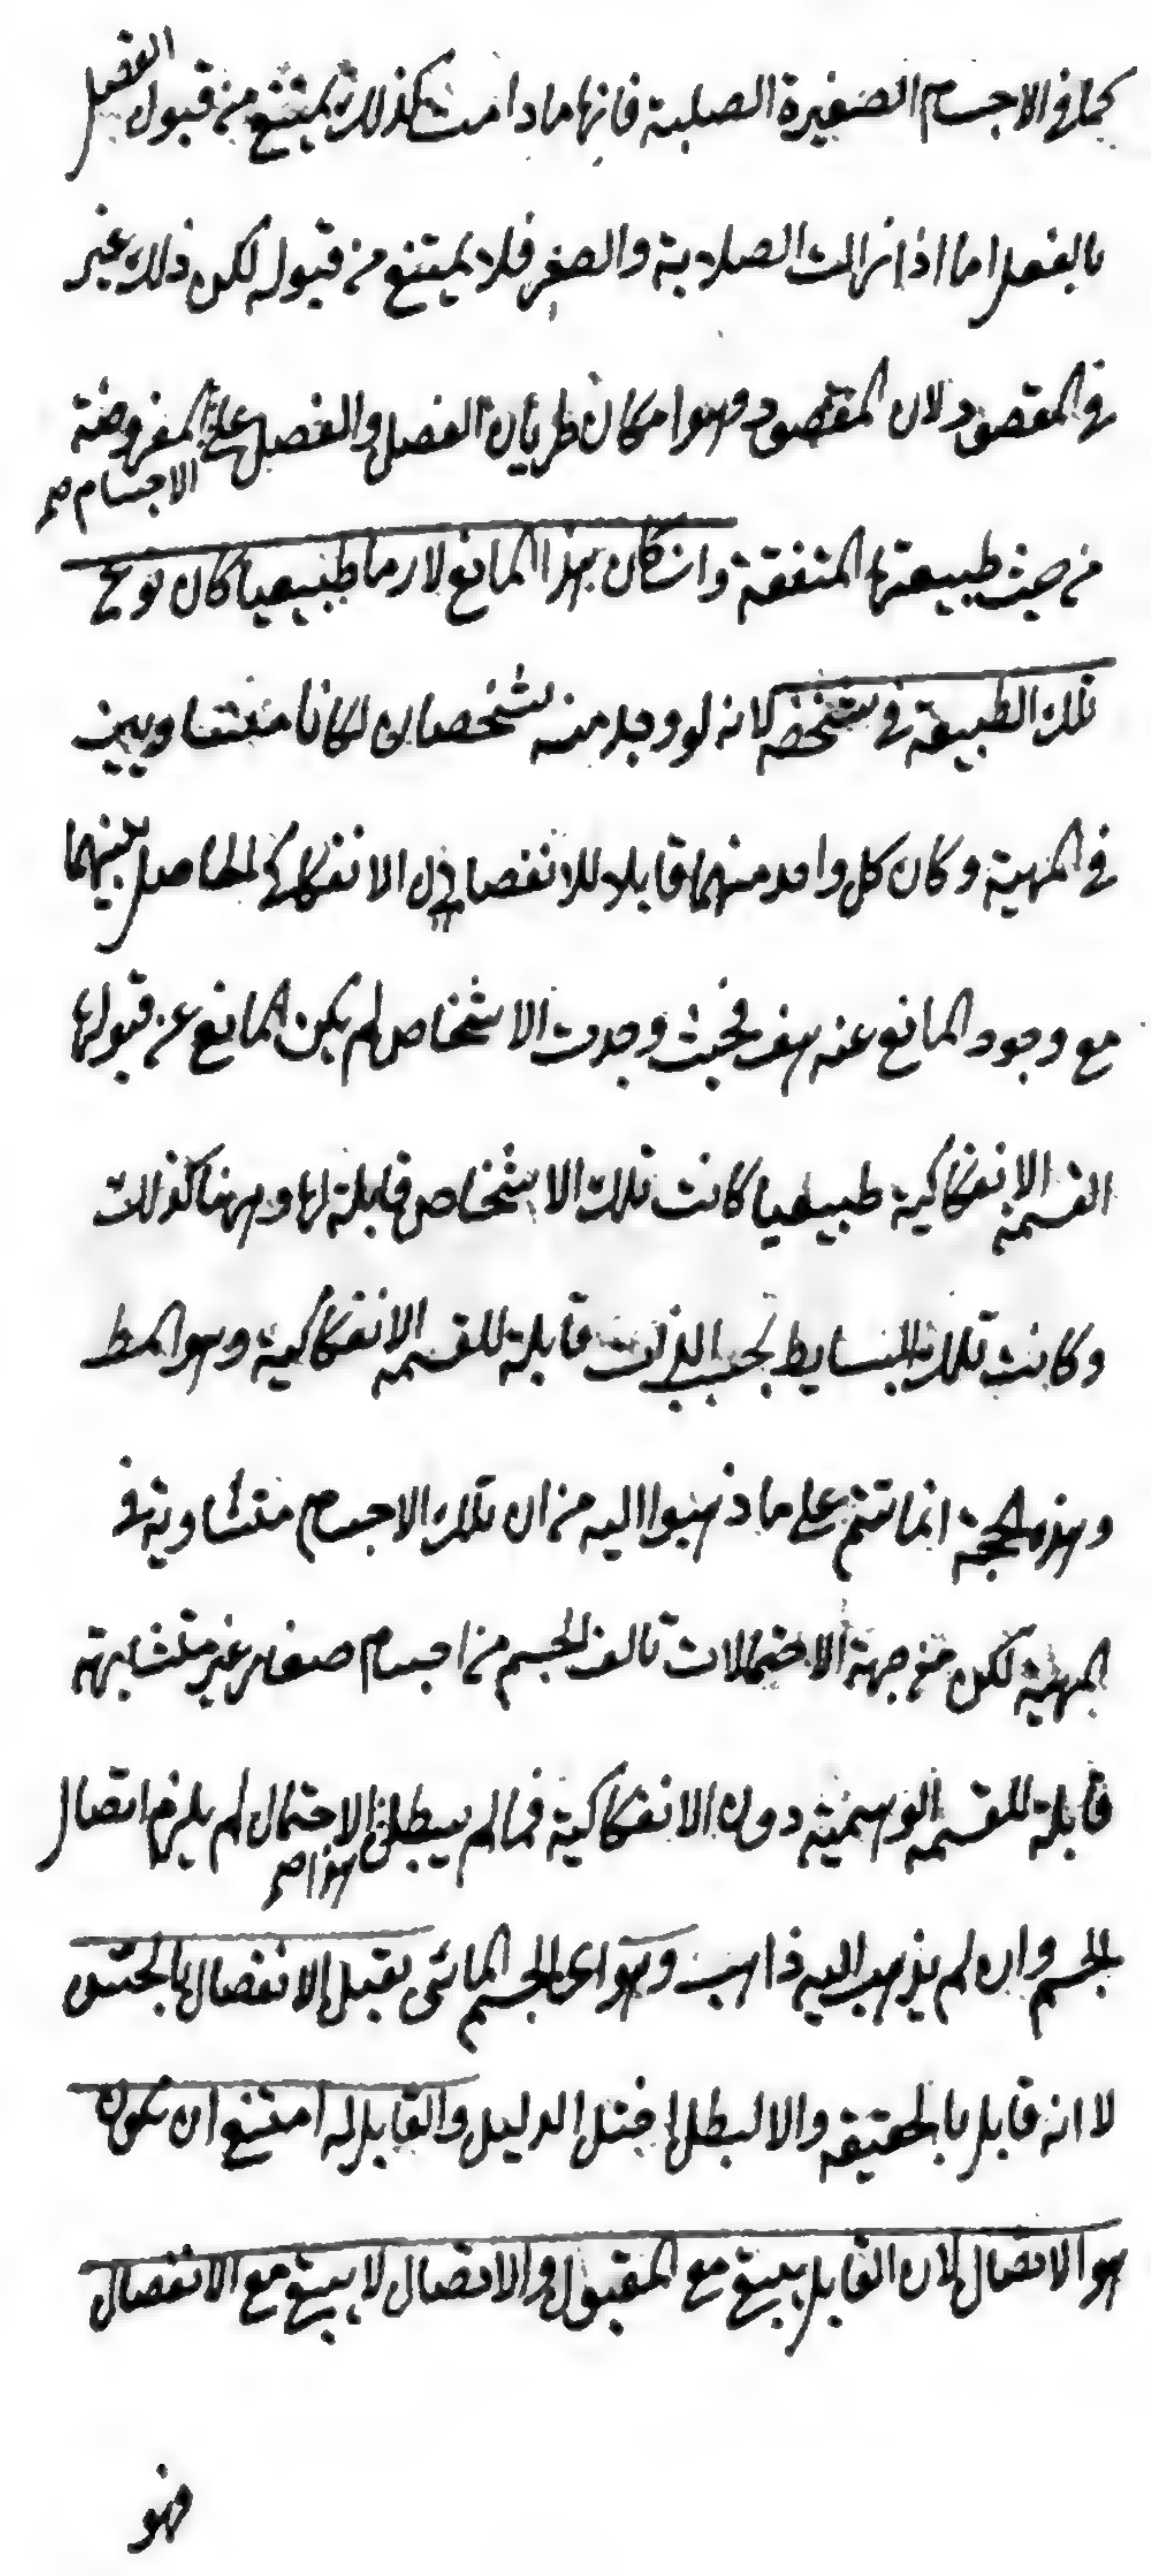 كما في الاجسام الصغيرة الصلبة فانها ما دامت كذلك يمتنع من قبول الفصل
بالفعل اما اذا زالت الصلابة والصغر فلا يمتنع من قبوله لكن ذلك غير
في المقصود لان المقصود هو امكان طريان الفصل والفصل على المفروضة
الاجسام صح
من حيث طبيعتها المتفقة وان كان هذا المانع لازما طبيعيا كان نوع
تلك الطبيعة في شخصه لانه لو وجد منه شخصان لكانا متساويين
في المهية وكان كل واحد منهما قابلا للانفصال الانفكاكي الحاصل بينهما
مع وجود المانع عنه هف فحيث وجدت الاشخاص لم يكن المانع عن قبولها
القسمة الانفكاكية طبيعيا كانت تلك الاشخاص قابلة لها وههنا كذلك
وكانت تلك البسايط بحسب الذات قابلة للقسمة الانفكاكية وهو المط
وهذه الحجة انما تتم على ما ذهبوا اليه من ان تلك الاجسام متساوية في
المهية لكن من جهة الاحتمالات تالف الجسم من اجسام صغار غير متشابهة
قابلة للقسمة الوهمية دون الانفكاكية فما لم يبطل الاحتمال لم يلزم اتصال
هذا صح
الجسم وان لم يذهب اليه ذاهب وهو اى الجسم المائى يقبل الانفصال بالحس
لا انه قابل بالحقيقة والا لبطل الدليل والقابل له امتنع ان يكون
هو الاتصال لان القابل يبقى مع المقبول والاتصال لا يبقى مع الانفصال
فهو